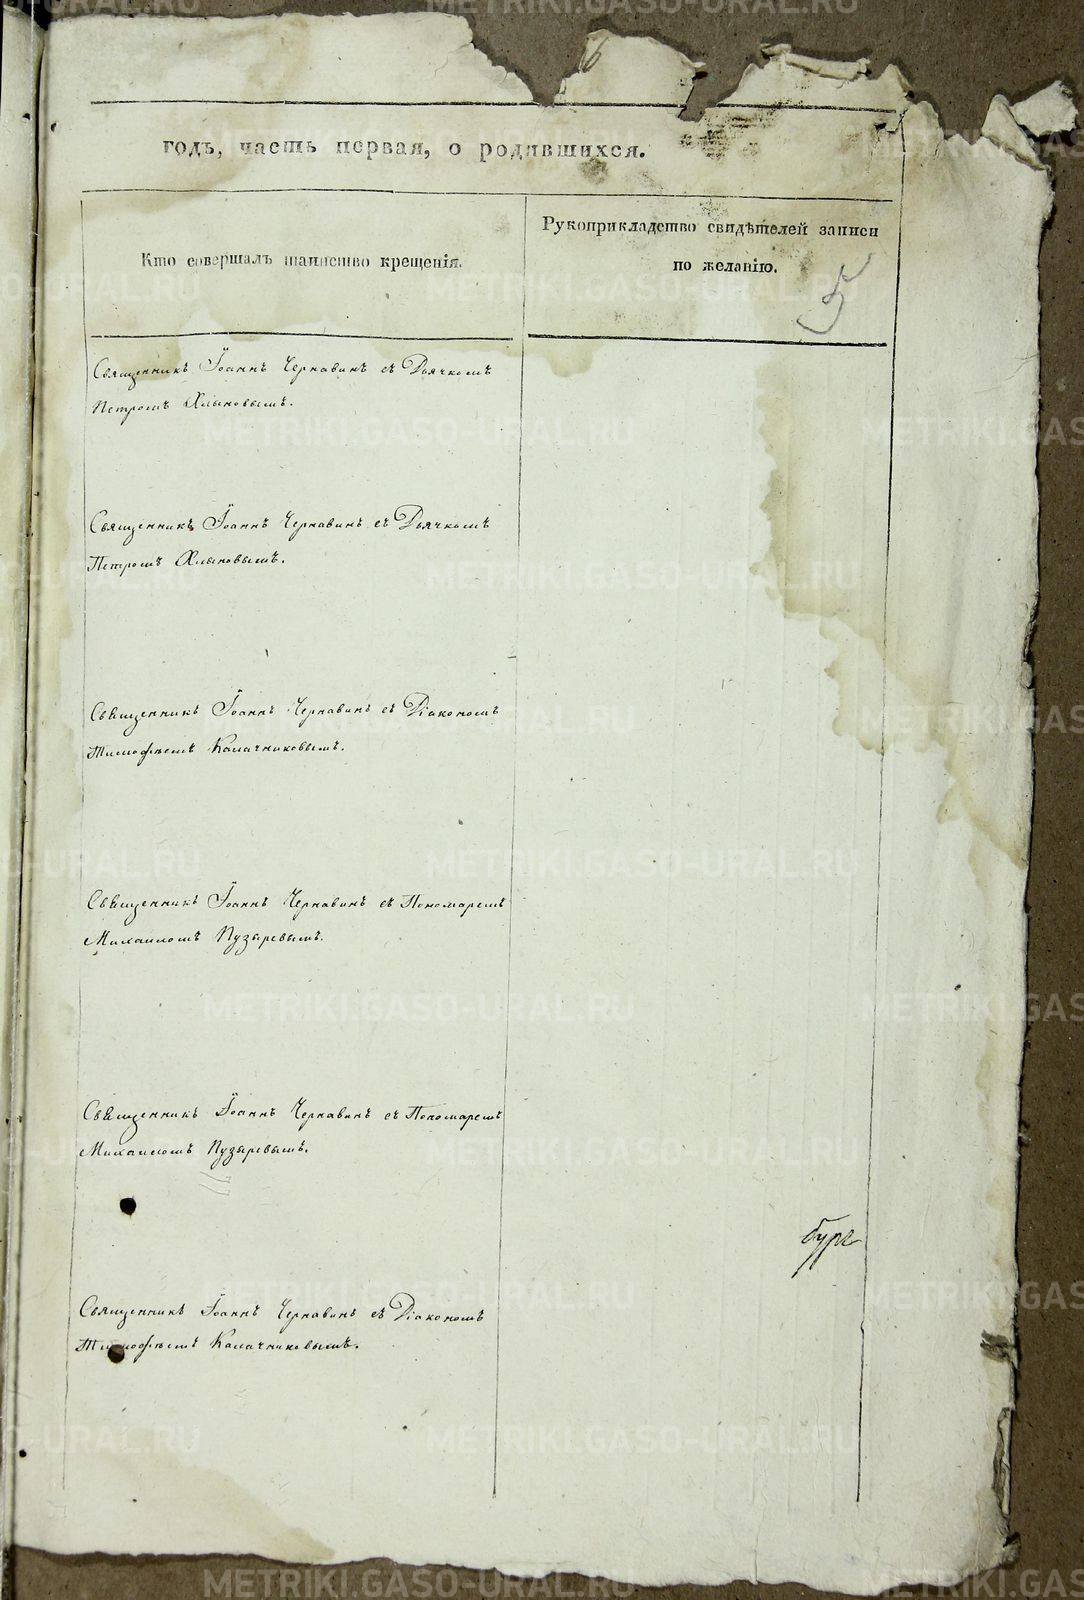 годъ, часть первая, о родившихся.
Кто совершалъ таинство крещенія.
Рукоприкладство свидѣтелей записи
по желанію.
Священникъ Іоаннъ Чернавинъ съ Дьячкомъ
Петромъ Хлыновымъ.
Священникъ Іоаннъ Чернавинъ съ Дьячкомъ
Петромъ Хлыновымъ.
Священникъ Іоаннъ Чернавинъ съ Діакономъ
Тимофѣемъ Калачниковымъ.
Священникъ Іоаннъ Чернавинъ съ Пономаремъ
Михаиломъ Пузыревымъ.
Священникъ Іоаннъ Чернавинъ съ Пономаремъ
Михаиломъ Пузыревымъ.
Священникъ Іоаннъ Чернавинъ съ Діакономъ
Тимофѣемъ Калачниковымъ.
METRIKI.GASO-URAL.RU